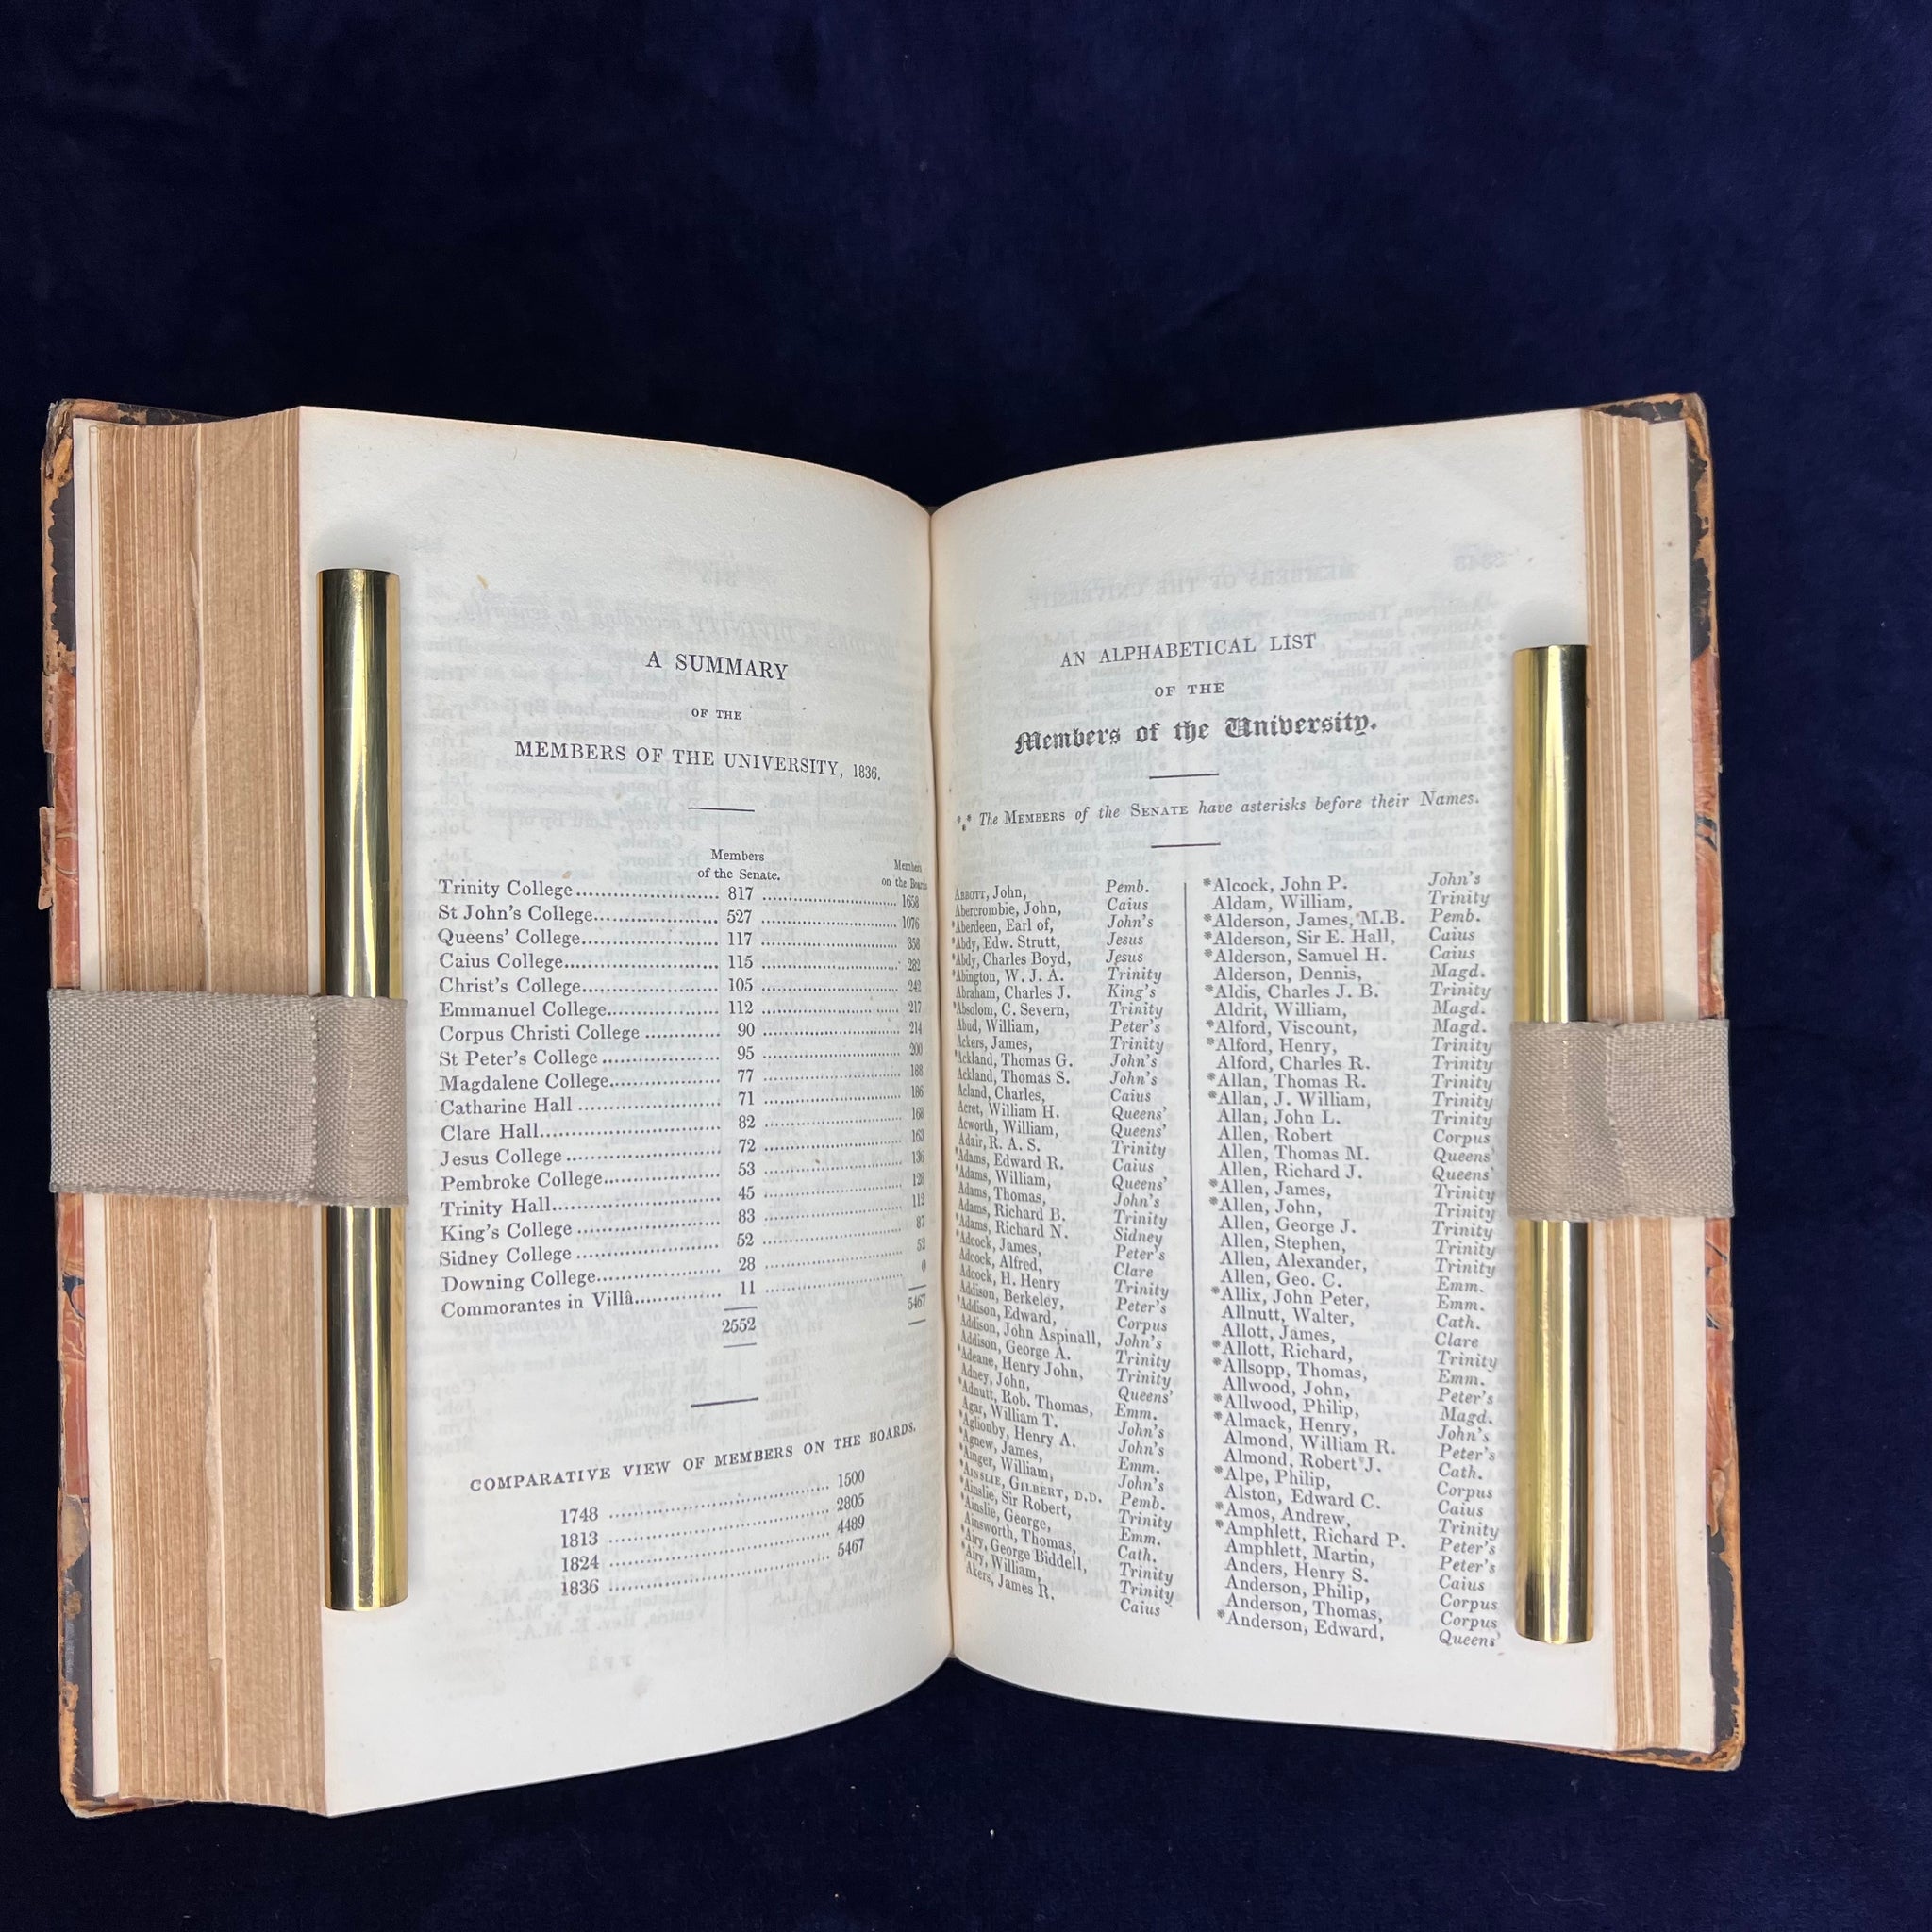 A SUMMARY
OF THE
MEMBERS OF THE UNIVERSITY, 1836.
Members of the Senate. Members on the Boards
Trinity College .......... 817 .......... 1658
St John's College .......... 527 .......... 1076
Queens' College .......... 117 .......... 358
Caius College .......... 115 .......... 282
Christ's College .......... 105 .......... 242
Emmanuel College .......... 112 .......... 217
Corpus Christi College .......... 90 .......... 214
St Peter's College .......... 95 .......... 200
Magdalene College .......... 77 .......... 188
Catharine Hall .......... 71 .......... 186
Clare Hall .......... 82 .......... 168
Jesus College .......... 72 .......... 163
Pembroke College .......... 53 .......... 136
Trinity Hall .......... 45 .......... 128
King's College .......... 83 .......... 112
Sidney College .......... 52 .......... 87
Downing College .......... 28 .......... 52
Commorantes in Villâ .......... 11 .......... 0
2552 5467
COMPARATIVE VIEW OF MEMBERS ON THE BOARDS.
1748 .......... 1500
1813 .......... 2805
1824 .......... 4489
1836 .......... 5467
AN ALPHABETICAL LIST
OF THE
Members of the University.
*** The MEMBERS of the SENATE have asterisks before their Names.
ABBOTT, John, Pemb.
Abercrombie, John, Caius
*Aberdeen, Earl of, John's
*Abdy, Edw. Strutt, Jesus
*Abdy, Charles Boyd, Jesus
*Abington, W. J. A. Trinity
Abraham, Charles J. King's
*Absolom, C. Severn, Trinity
Abud, William, Peter's
Ackers, James, Trinity
*Ackland, Thomas G. John's
Ackland, Thomas S. John's
Acland, Charles, Caius
Acret, William H. Queens'
Acworth, William, Queens'
Adair, R. A. S. Trinity
*Adams, Edward R. Caius
*Adams, William, Queens'
Adams, Thomas, John's
Adams, Richard B. Trinity
*Adams, Richard N. Sidney
*Adcock, James, Peter's
Adcock, Alfred, Clare
Adcock, H. Henry Trinity
Addison, Berkeley, Peter's
*Addison, Edward, Corpus
Addison, John Aspinall, John's
Addison, George A. Trinity
*Adeane, Henry John, Trinity
Adney, John, Queens'
*Adnutt, Rob. Thomas, Emm.
Agar, William T. John's
*Aglionby, Henry A. John's
*Agnew, James, Emm.
*Ainger, William, John's
*AINSLIE, GILBERT, D.D. Pemb.
*Ainslie, Sir Robert, Trinity
*Ainslie, George, Emm.
Ainsworth, Thomas, Cath.
*Airy, George Biddell, Trinity
*Airy, William, Trinity
Akers, James R. Caius
*Alcock, John P. John's
Aldam, William, Trinity
*Alderson, James, M.B. Pemb.
*Alderson, Sir E. Hall, Caius
*Alderson, Samuel H. Caius
Alderson, Dennis, Magd.
*Aldis, Charles J. B. Trinity
Aldrit, William, Magd.
*Alford, Viscount, Magd.
*Alford, Henry, Trinity
Alford, Charles R. Trinity
*Allan, Thomas R. Trinity
*Allan, J. William, Trinity
Allan, John L. Trinity
Allen, Robert Corpus
Allen, Thomas M. Queens'
Allen, Richard J. Queens'
*Allen, James, Trinity
*Allen, John, Trinity
Allen, George J. Trinity
Allen, Stephen, Trinity
Allen, Alexander, Trinity
Allen, Geo. C. Emm.
*Allix, John Peter, Emm.
Allnutt, Walter, Cath.
Allott, James, Clare
*Allott, Richard, Trinity
*Allsopp, Thomas, Emm.
Allwood, John, Peter's
*Allwood, Philip, Magd.
*Almack, Henry, John's
Almond, William R. Peter's
Almond, Robert J. Cath.
*Alpe, Philip, Corpus
Alston, Edward C. Caius
*Amos, Andrew, Trinity
*Amphlett, Richard P. Peter's
Amphlett, Martin, Peter's
Anders, Henry S. Caius
Anderson, Philip, Corpus
Anderson, Thomas, Corpus
*Anderson, Edward, Queens'